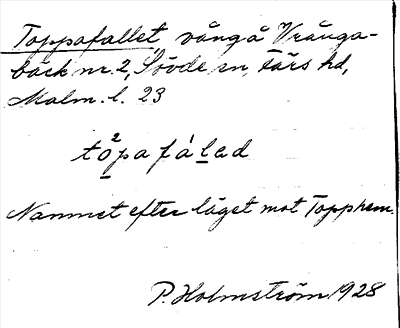 Toppafallet, vångå Vrånga-
bäck nr. 2, Sövde sn, Färs hd,
Malm. l. 23
to̲²pafál̲ad
Namnet efter läget mot Topphem.
P. Holmström 1928